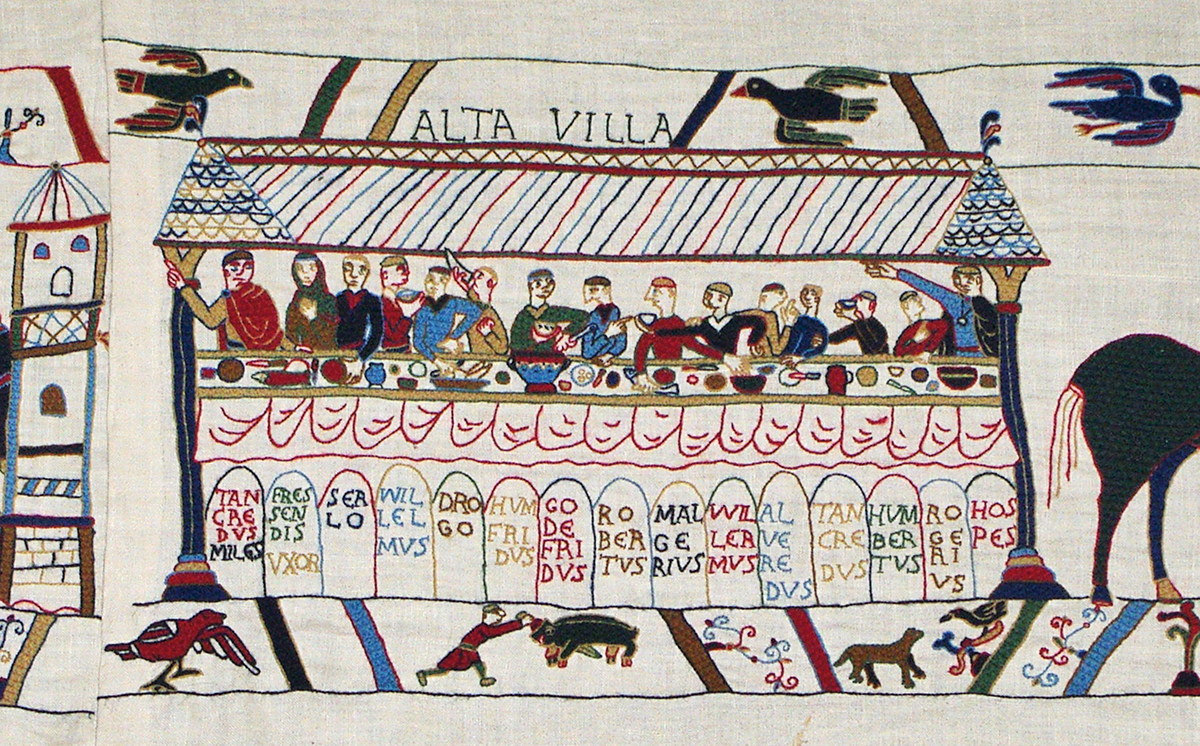 ALTA VILLA
TAN
CRE
DVS
MILES
FRES
SEN
DIS
VXOR
SER
LO
WIL
LEL
MVS
DRO
GO
HVM
FRI
DVS
GO
DE
FRI
DVS
RO
BER
TVS
MAL
GE
RIVS
WIL
LER
MVS
AL
VE
RE
DVS
TAN
CRE
DVS
HVM
BER
TVS
RO
GE
RI
VS
HOS
PES